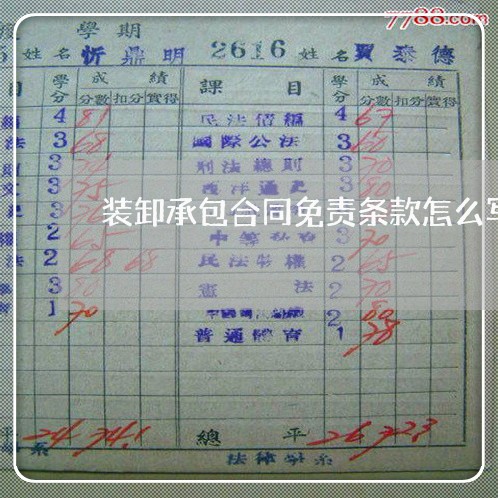 7788.com
學期
姓名 忻鼎明 2616 姓名 賈泰德
目 學分 成績 課目 學分 成績
分數 扣分 實得 分數 扣分 實得
4 81 民法債編 4 67
法 3 68 國際公法 3 60
3 刑法總則 3 70
3 75 西洋通史 3 80
装卸承包合同免责条款怎么写
2 65 3 70
法 2 68 68 民法物權 2 65
3 80 憲法 2 70
1 70 2 80
普通體育 1 78
24 74.1 總平 26 72.3
系 法律學系